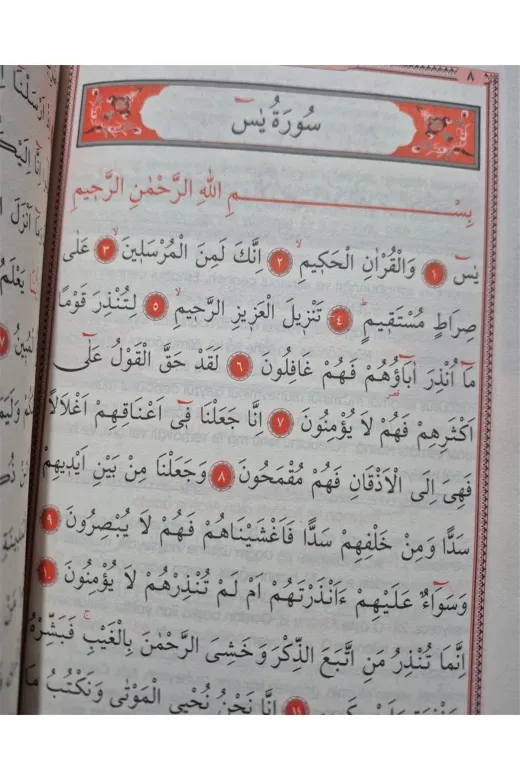 ٨
سُورَةُ يٰسٓ
بِسْمِ اللهِ الرَّحْمٰنِ الرَّحٖيمِ
يٰسٓ ١ وَالْقُرْاٰنِ الْحَكٖيمِۙ ٢ اِنَّكَ لَمِنَ الْمُرْسَلٖينَۙ ٣ عَلٰى
صِرَاطٍ مُسْتَقٖيمٍۜ ٤ تَنْزٖيلَ الْعَزٖيزِ الرَّحٖيمِۙ ٥ لِتُنْذِرَ قَوْمًا
مَٓا اُنْذِرَ اٰبَٓاؤُهُمْ فَهُمْ غَافِلُونَ ٦ لَقَدْ حَقَّ الْقَوْلُ عَلٰٓى
اَكْثَرِهِمْ فَهُمْ لَا يُؤْمِنُونَ ٧ اِنَّا جَعَلْنَا فٖٓى اَعْنَاقِهِمْ اَغْلَالًا
فَهِىَ اِلَى الْاَذْقَانِ فَهُمْ مُقْمَحُونَ ٨ وَجَعَلْنَا مِنْ بَيْنِ اَيْدٖيهِمْ
سَدًّا وَمِنْ خَلْفِهِمْ سَدًّا فَاَغْشَيْنَاهُمْ فَهُمْ لَا يُبْصِرُونَ ٩
وَسَوَٓاءٌ عَلَيْهِمْ ءَاَنْذَرْتَهُمْ اَمْ لَمْ تُنْذِرْهُمْ لَا يُؤْمِنُونَ ١٠
اِنَّمَا تُنْذِرُ مَنِ اتَّبَعَ الذِّكْرَ وَخَشِىَ الرَّحْمٰنَ بِالْغَيْبِۚ فَبَشِّرْهُ
١١ اِنَّا نَحْنُ نُحْيِى الْمَوْتٰى وَنَكْتُبُ مَا